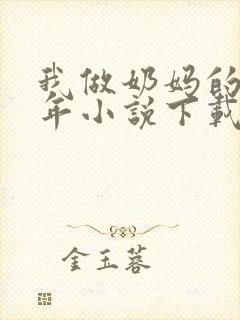 我做奶妈的
年小説下載
金玉蓉